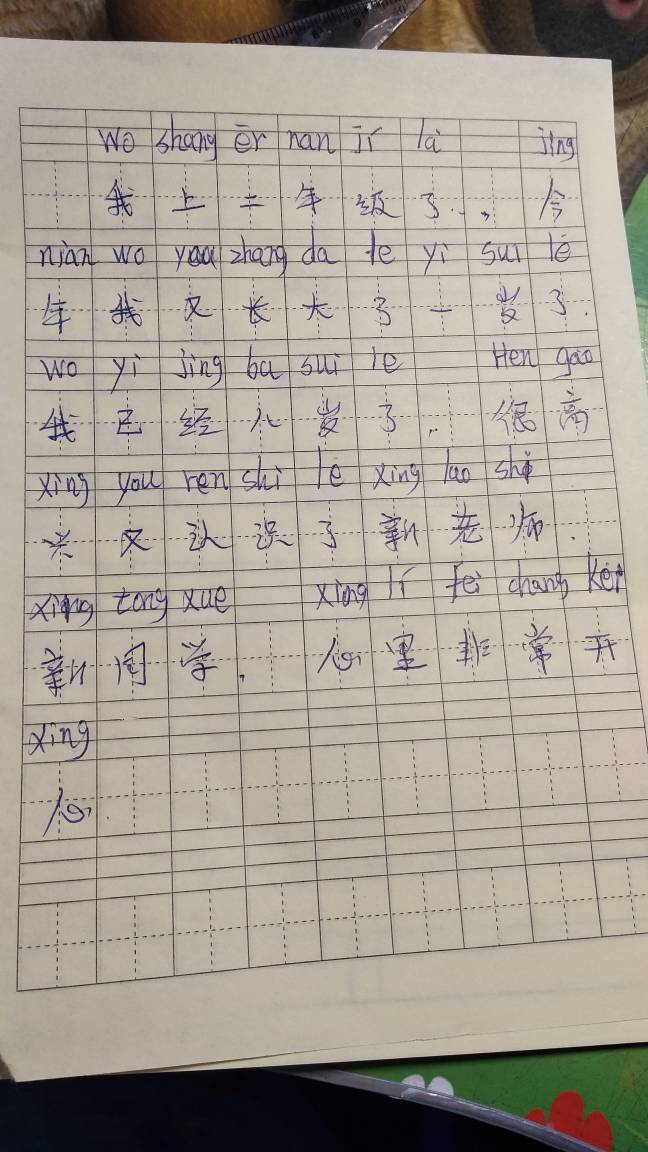 wo shang ēr nan jí la jīng
我上二年级了.，今
nian wo you zhang da le yi sui lé
年我又长大了一岁了.
wo yi jing ba sui le Hen gao
我已经八岁了.很高
xing you ren shi lé xing lao shi
兴又认识了新老师.
xing tong xue xing lí fei chang kei
新同学.心里非常开
xing
心.